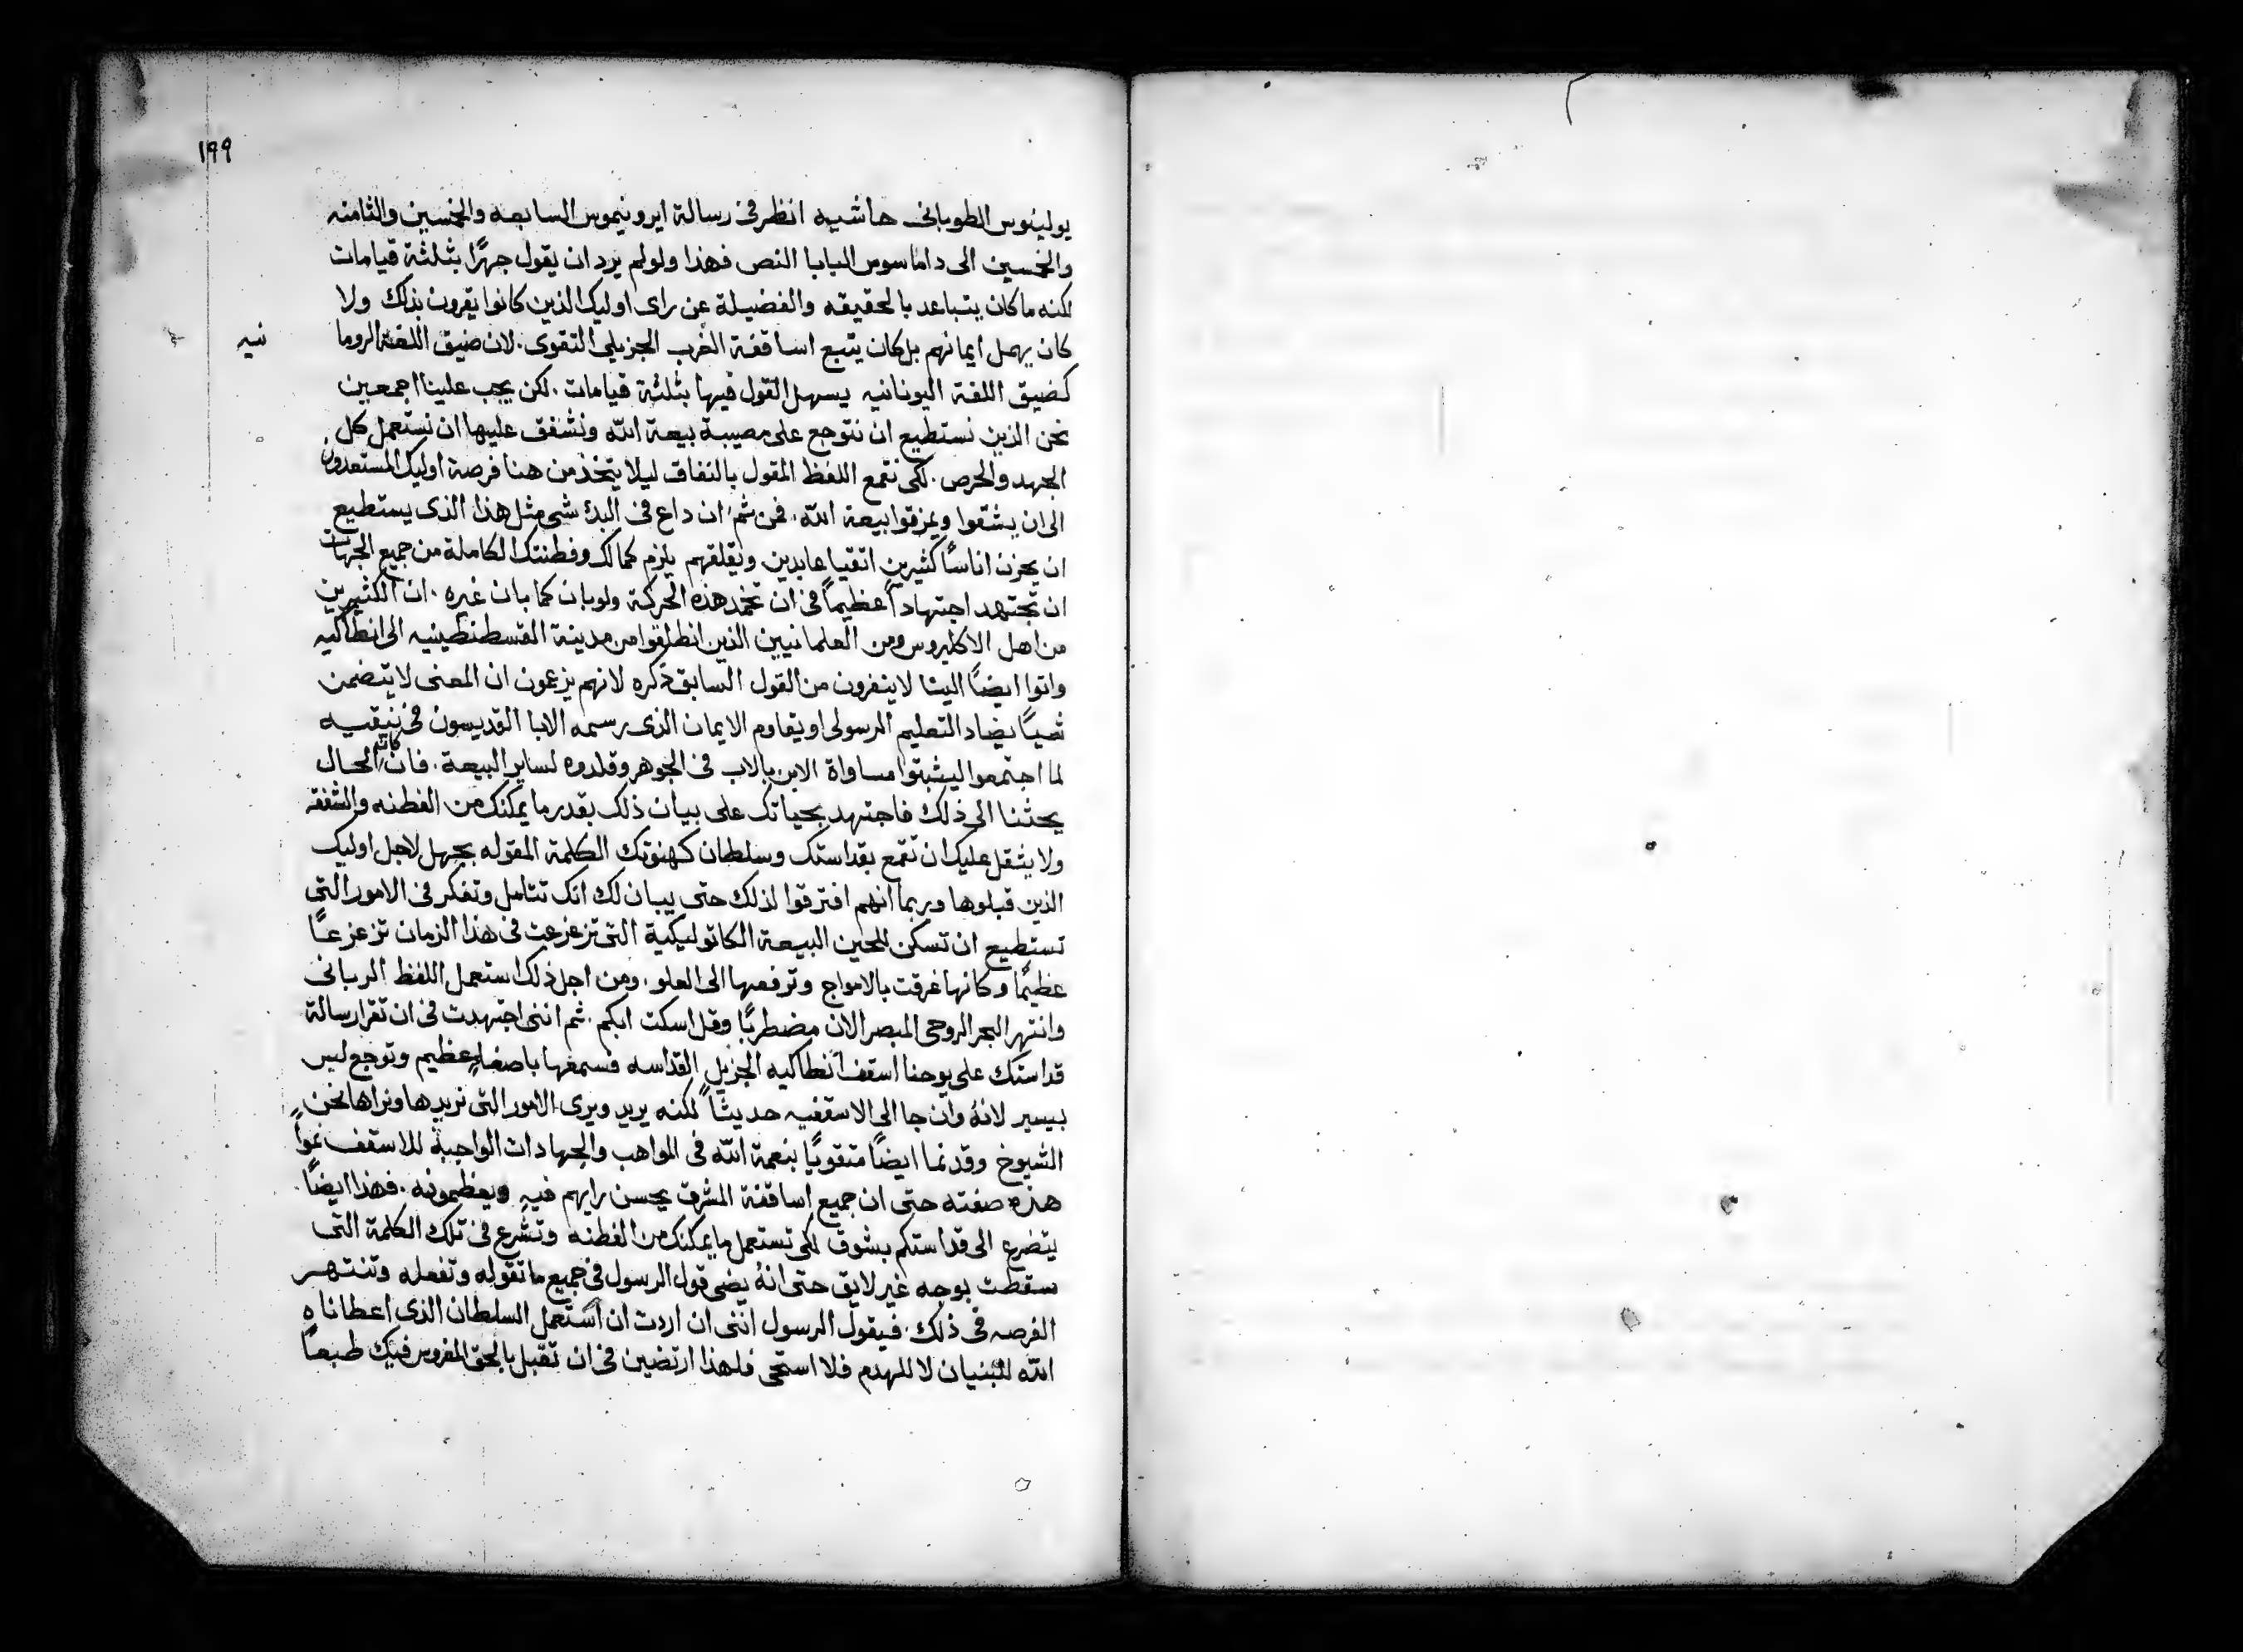 ١٩٩
يولينوس الطوباني حاشيه انظر في رسالة ايرونيموس السابعه والخمسين والثامنه
والخمسين الى داماسوس البابا النص فهذا ولو لم يرد ان يقول جهرًا بثلثة قيامات
لكنه ما كان يتباعد بالحقيقه والفضيلة عن راى اوليك الذين كانوا يقرون بذلك ولا
كان يهمل ايمانهم بل كان يتبع اساقفة الغرب الجزيلي التقوى. لان ضيق اللغة الروما
نيه
كضيق اللغة اليونانيه يسهل القول فيها بثلثة قيامات. لكن يجب علينا اجمعين
نحن الذين نستطيع ان نتوجع على مصيبة بيعة الله ونشفق عليها ان نستعمل كل
الجهد والحرص. لكى نقمع اللفظ المقول بالنفاق ليلا يتخذ من هنا فرصة اوليك المستعدون
الى ان يشقوا ويمزقوا بيعة الله. فمن ثم ان داع في البدء شى مثل هذا الذى يستطيع
ان يحزن اناسًا كثيرين اتقيا عابدين ويقلقهم يلزم كمالك وفطنتك الكاملة من جميع الجهات
ان تجتهد اجتهادًا عظيمًا في ان تخمد هذه الحركة ولو بان كما بان غيره. ان الكثيرين
من اهل الاكليروس ومن العلمانيين الذين انطلقوا من مدينة القسطنطينيه الى انطاكيه
واتوا ايضًا الينا لا ينفرون من القول السابق ذكره لانهم يزعمون ان المعنى لا يتضمن
شيًا يضاد التعليم الرسولى او يقاوم الايمان الذى رسمه الابا القديسون في نيقيه
لما اجتمعوا ليثبتوا مساواة الابن بالاب في الجوهر وقلدوه لساير البيعة. فان كانه الحال
يحثنا الى ذلك فاجتهد بحياتك على بيان ذلك بقدر ما يمكنك من الفطنه والشفقه
ولا يثقل عليك ان تقمع بقداستك وسلطان كهنوتك الكلمة المقوله بجهل لاجل اوليك
الذين قبلوها وربما انهم افترقوا لذلك حتى يبان لك انك تتامل وتفكر في الامور التى
تستطيع ان تسكن للحين البيعة الكاتوليكية التى تزعزعت في هذا الزمان تزعزعًا
عظيمًا وكانها غرقت بالامواج وترفعها الى العلو. ومن اجل ذلك استعمل اللفظ الربانى
وانتهر البحر الروحى المبصر الان مضطربًا وقل اسكت ابكم. ثم اننى اجتهدت في ان تقرا رسالة
قداستك على يوحنا اسقف انطاكيه الجزيل القداسه فسمعها باصغاءٍ عظيم وتوجع ليس
بيسير لانهُ وان جا الى الاسقفيه حديثًا لكنه يريد ويرى الامور التى نريدها ونراها نحن
الشيوخ وقد نما ايضًا متقويًا بنعمة الله في المواهب والجهادات الواجبة للاسقف نموًا
هذه صفته حتى ان جميع اساقفة المشرق يحسن رايهم فيه ويعظمونه. فهذا ايضًا
يتضرع الى قداستكم بشوق لكى تستعمل ما يمكنك من الفطنه وتشرع في تلك الكلمة التى
سقطت بوجه غير لايق حتى انهُ يضى قول الرسول في جميع ما تقوله وتفعله وتنتهر
الفرصه في ذلك. فيقول الرسول اننى ان اردت ان استعمل السلطان الذى اعطاناه
الله للبنيان لا للهدم فلا استحى فلهذا ارتضين في ان تقبل بالحق المغروس فيك طبعًا